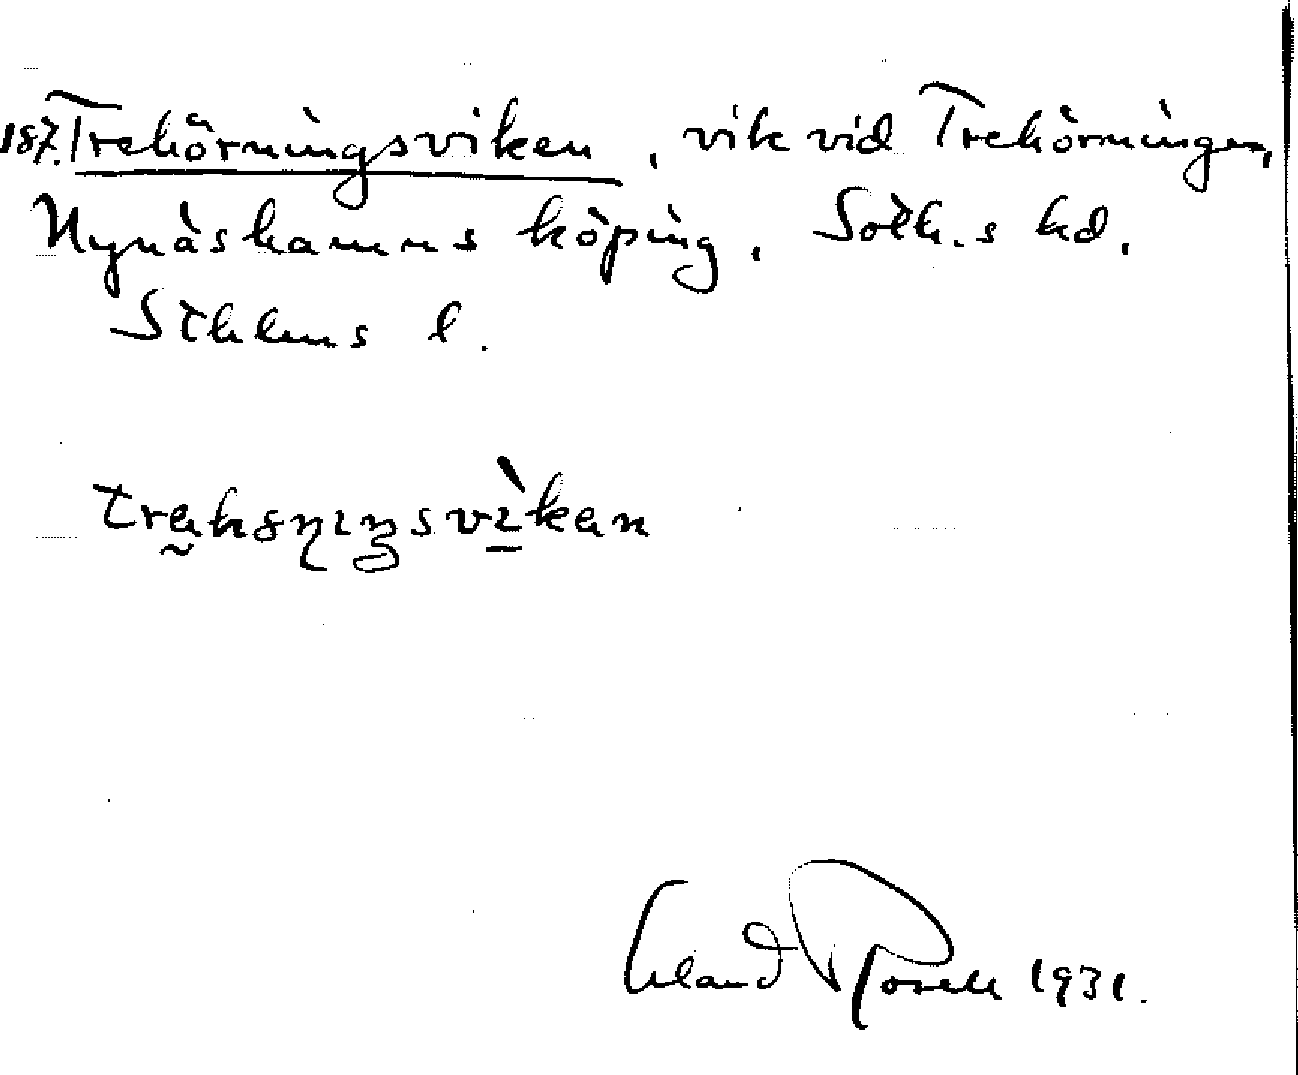 187. Trehörningsviken, vik vid Trehörningen,
Nynäshamns köping, Soth.s hd.
Sthlms l.
trehörningsvìken
Erland Rosell 1931.